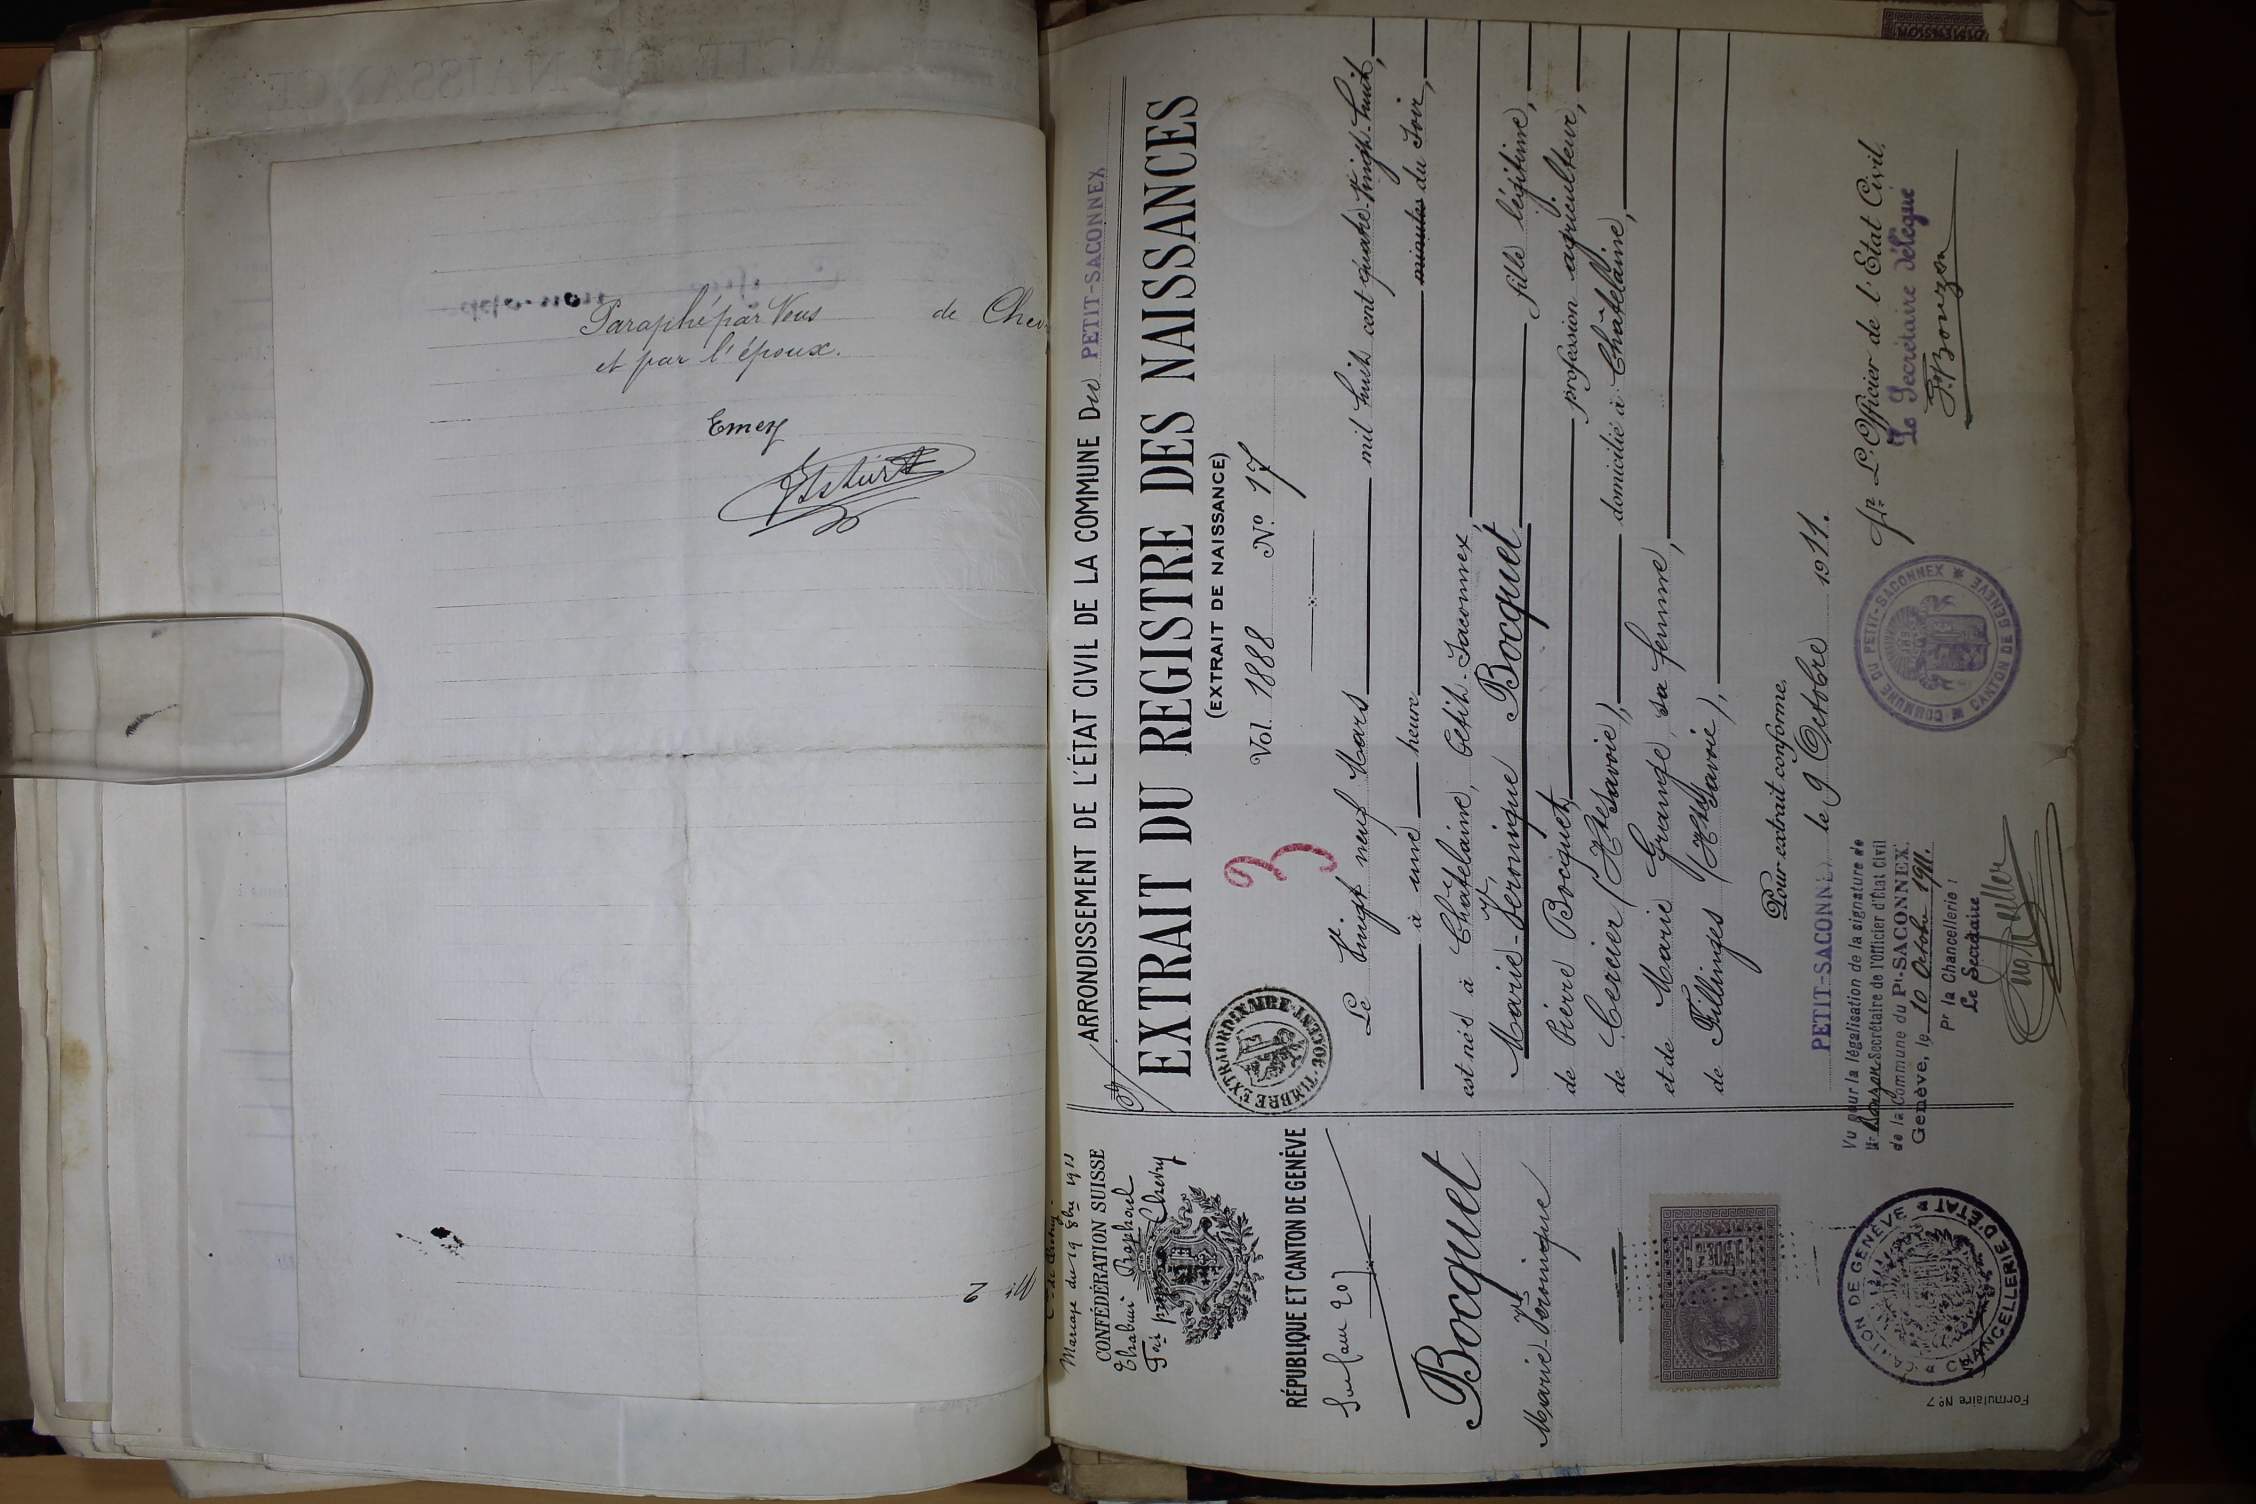 Paraphé par Nous
et par l'époux.
de Chev
Emery
Mariage du 19 8bre 1911
CONFÉDÉRATION SUISSE
Raphael
Chevry
RÉPUBLIQUE ET CANTON DE GENÈVE
Bocquet
Marie-Véronique
CANTON DE GENÈVE
CHANCELLERIE D'ÉTAT
Formulaire No 7
ARRONDISSEMENT DE L'ÉTAT CIVIL DE LA COMMUNE Du PETIT-SACONNEX
EXTRAIT DU REGISTRE DES NAISSANCES
(EXTRAIT DE NAISSANCE)
Vol. 1888 No. 17
3
TIMBRE EXTRAORDINAIRE
Le vingt neuf Mars mil huit cent quatre-vingt-huit,
à une heure minutes du soir,
est née à Châtelaine, Petit-Saconnex,
Marie-Véronique Bocquet fille légitime,
de Pierre Bocquet, profession agriculteur,
de Cercier (Hte Savoie), domicilié à Châtelaine,
et de Marie Grange, sa femme,
de Fillinges (Hte Savoie),
Pour extrait conforme,
PETIT-SACONNEX le 9 Octobre 1911.
pr L'Officier de l'État Civil,
Le Secrétaire délégué
F. Bouzon
COMMUNE DU PETIT-SACONNEX
CANTON DE GENÈVE
Vu pour la légalisation de la signature de
Mr Bouzon Secrétaire de l'Officier d'État Civil
de la Commune du Pt-SACONNEX.
Genève, le 10 Octobre 1911.
Pr la Chancellerie :
Le Secrétaire